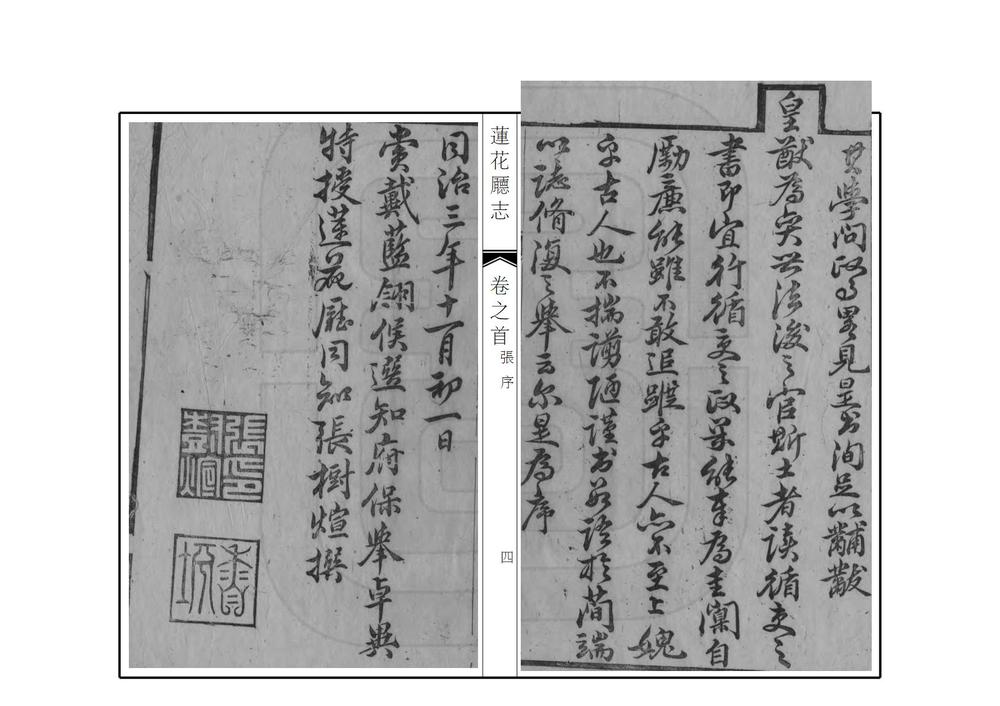 其學問政事畧見是書洵足以黼黻
皇猷為奕世法後之官斯土者讀循吏之
書即宜行循吏之政果能奉為圭闑自
勵廉能雖不敢追蹤乎古人亦不至上媿
乎古人也不揣謭陋謹書數語於簡端
以誌脩復之舉云尔是為序
蓮花廳志
卷之首
張序
四
同治三年十一月初一日
賞戴藍翎候選知府保舉卓異
特授蓮花廳同知張樹煊撰